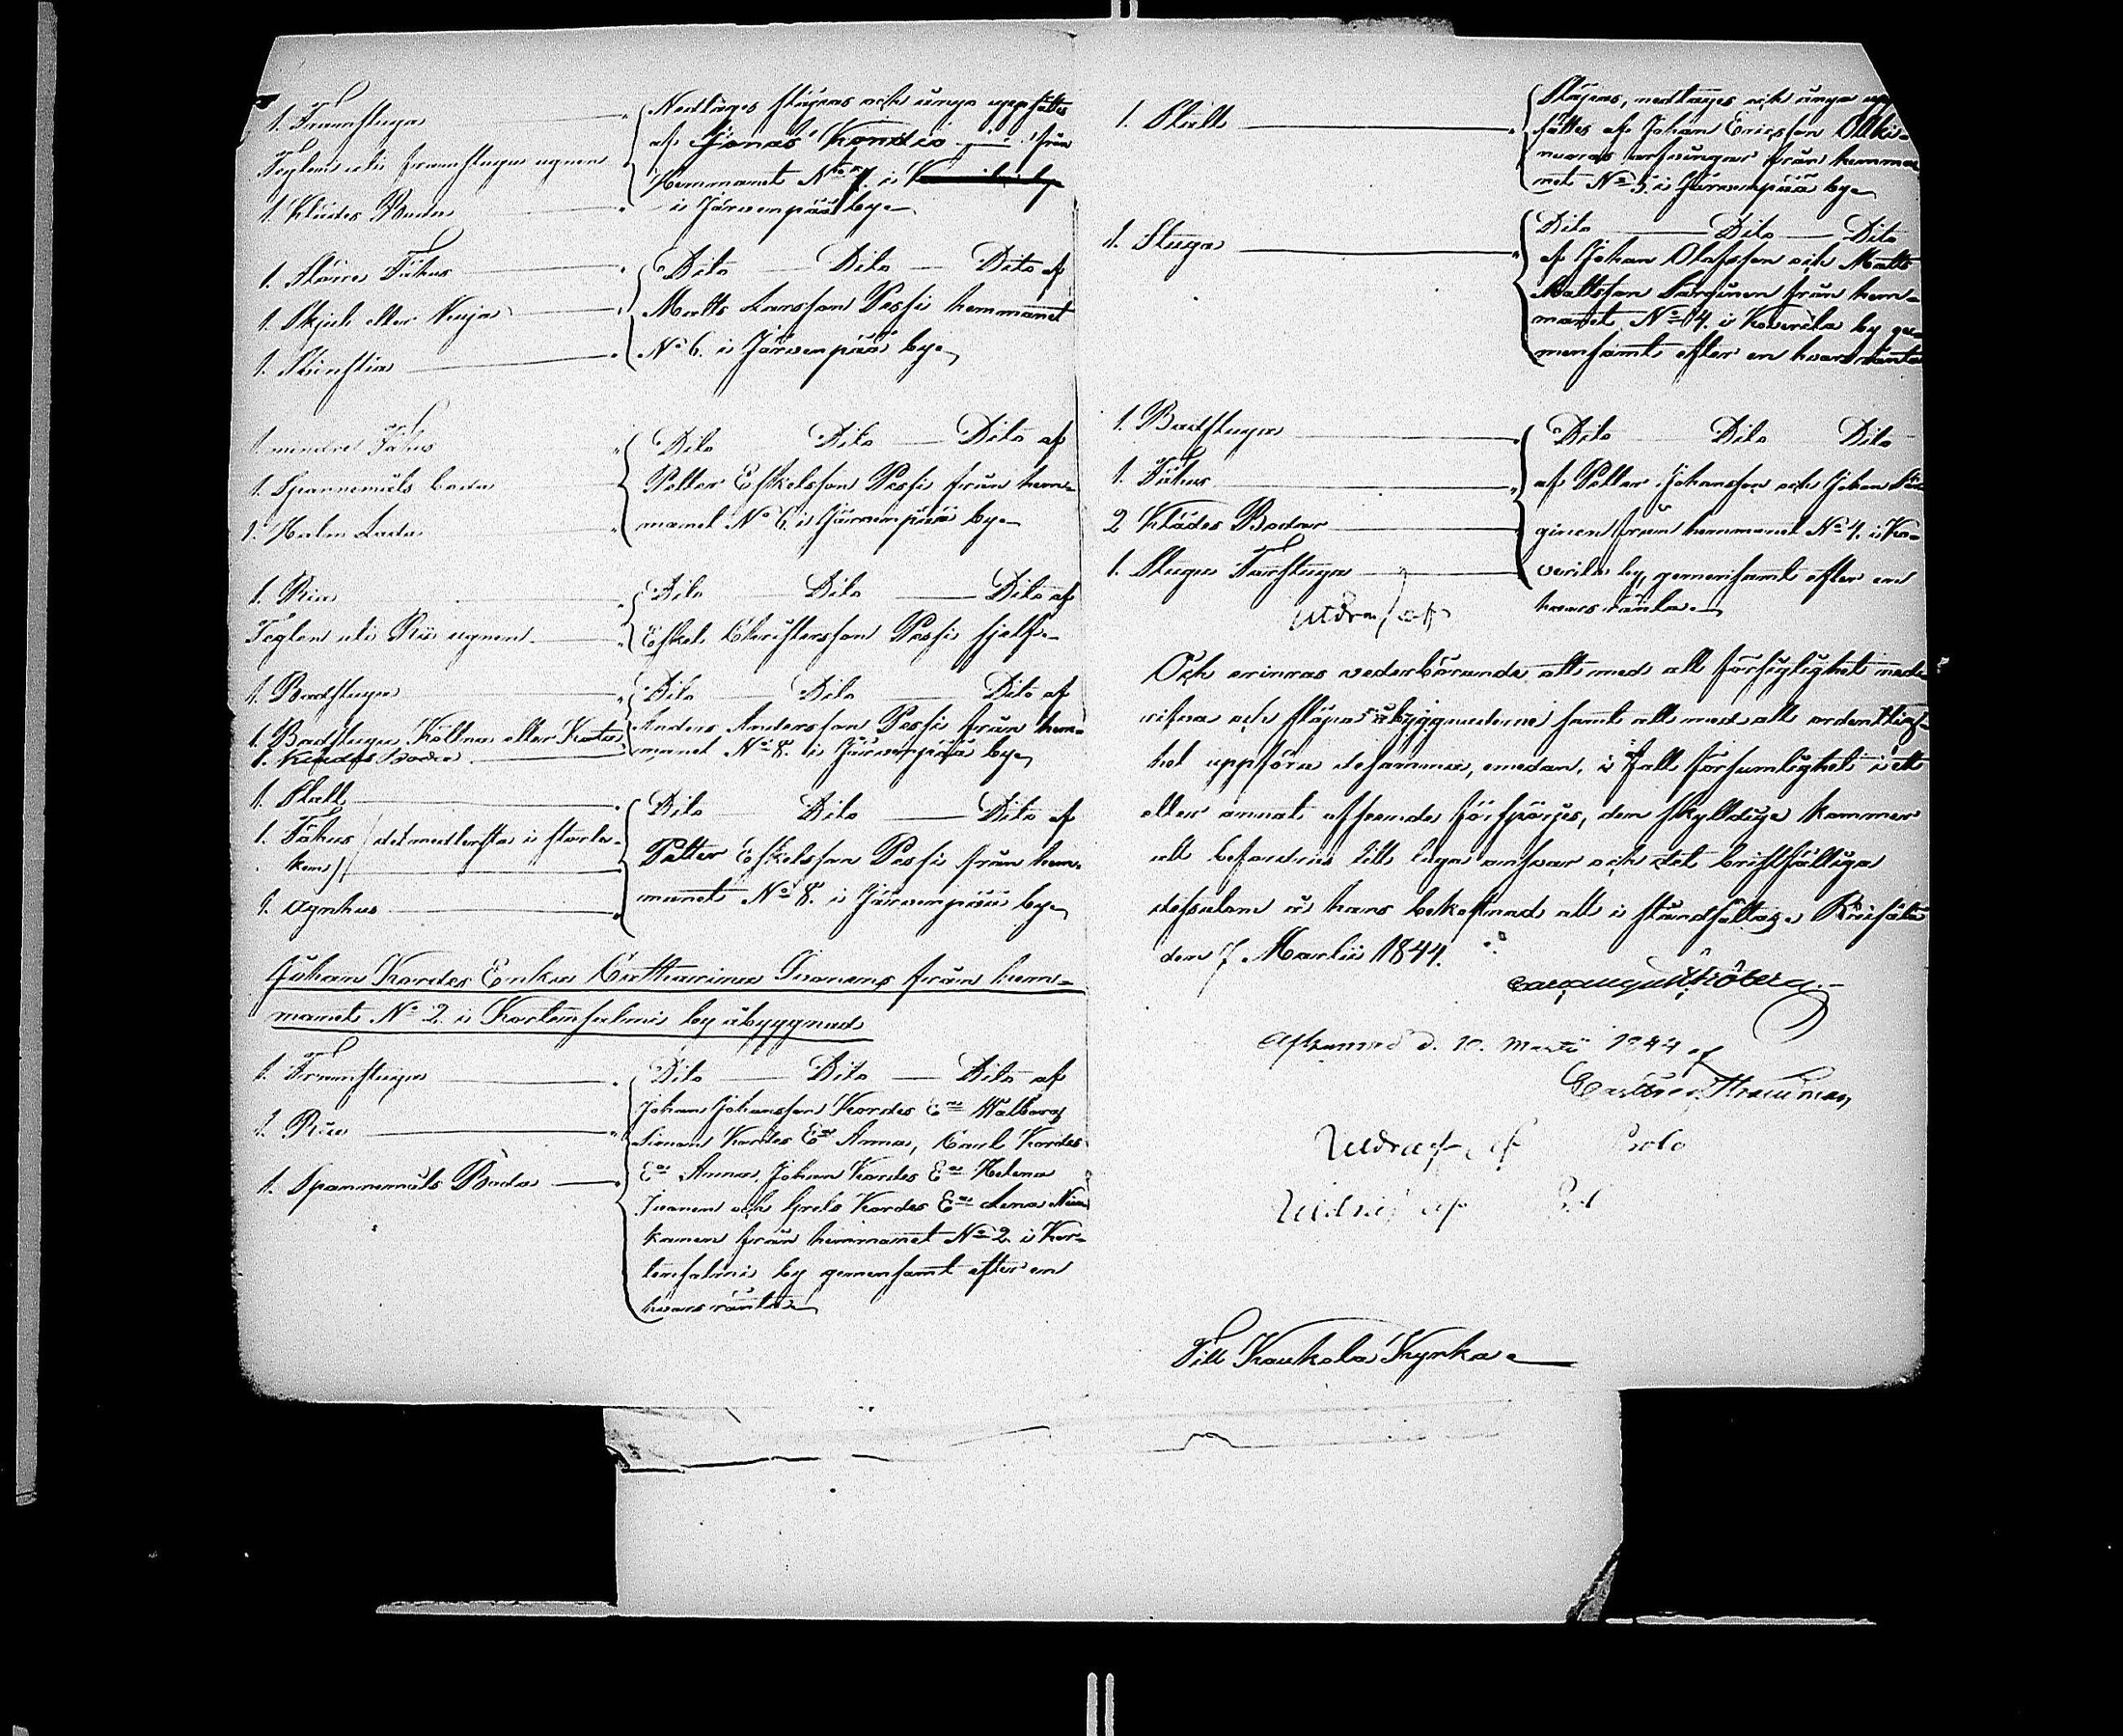 1. Framstuga
Teglen uti framstugu ugnen
1. Klädes Boda
Nedtages släpas och ånyo uppsättes
af Jonas Kondio från
Hemmanet No 7. i
i Järvenpää by
1. Större Fähus
1. Skjul eller Kuja
1.
Dito Dito Dito af
Matts Larsson Pessi hemmanet
No 6. i Järvenpää by
1. mindre Fähus
1. Spannemåls boda
1. Halm Lada
Dito Dito Dito af
Petter Eskelsson Pessi från hem-
manet No 6. i Järvenpää by
1. Ria
Teglen uti Rii ugnen
Dito Dito Dito af
Eskel Christersson Pessi sjelf
1. Badstuga
1. Badstugu Köllna eller Kota
1. Klädes Boda
Dito Dito Dito af
Anders Andersson Pessi från hem-
manet No 8. i Järvenpää by
1. Stall
1. Fähus (det medlersta i storle-
ken)
1. Agnhus
Dito Dito Dito af
Petter Eskelsson Pessi från hem-
manet No 8. i Järvenpää by
Johan Kordes Enka Catharina Ivanens från hem-
manet No 2. i Kortensalmi by åbyggnad
1. Framstuga
1. Ria
1. Spannemåls Boda
Dito Dito Dito af
Johan Johansson Kordes Ea Walborg
Simon Kordes Ea Anna, Carl Kordes
Ea Anna, Johan Kordes Ea Helena
Ivanen och Grels Kordes Ea Lena
kanen från hemmanet No 2. i Kor-
tensalmi by gemensamt efter en
hvars ränta
1. Stall
Släpas, nedtages och ånyo upp
sättes af Johan Ericsson Olki-
nuoras arfvingar från hemma
net No 5. i Järvenpää by
1. Stuga
Dito Dito Dito
af Johan Olofsson och Matts
Mattsson Särginen från hem-
manet No 4. i Koverila by ge-
mensamt efter en hvars ränta
1. Badstuga
1. Fähus
2 Klädes Bodar
1. Stugu Farstuga
Dito Dito Dito
af Petter Johansson och Johan Sär
ginen från hemmanet No 4. i Ko-
verila by, gemensamt efter en
hvars ränta
Utdrag af
Och erinras vederbörande att med all försigtighet ned
rifva och släpa åbyggnaderne samt att med all ordentlig-
het uppföra desamma, emedan, i fall försumlighet i ett
eller annat afseende förspörjes, den skyldige kommer
att befordras till laga ansvar och det bristfälliga
dessutom å hans bekostnad att i ståndsättas. Räisälä
den 7 Martii 1844.
Afkunnad d. 10. Martii 1844 af
Utdrag af Proto
Utdrag af
Till Kaukola Kyrka